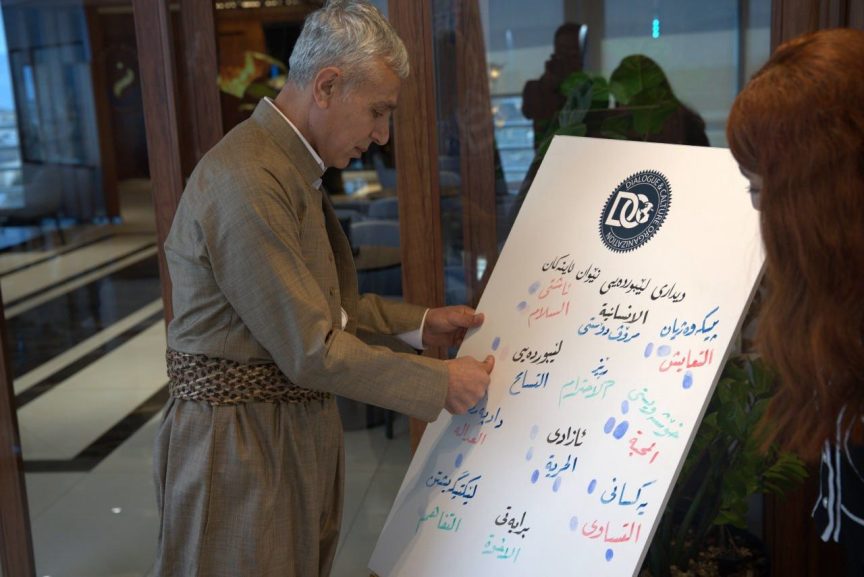 DIALOGUE & CULTURE ORGANIZATION
DC
دیداری لێبوردەیی نێوان ئاینەکان
پێکەوەژیان
التعايش
الانسانية
مرۆڤ دۆستی
ئاشتی
السلام
خۆشەویستی
المحبة
ڕێز
الاحترام
لێبوردەیی
التسامح
یەکسانی
التساوي
ئازادی
الحرية
العدالة
برایەتی
الاخوة
لێکتێگەیشتن
التفاهم